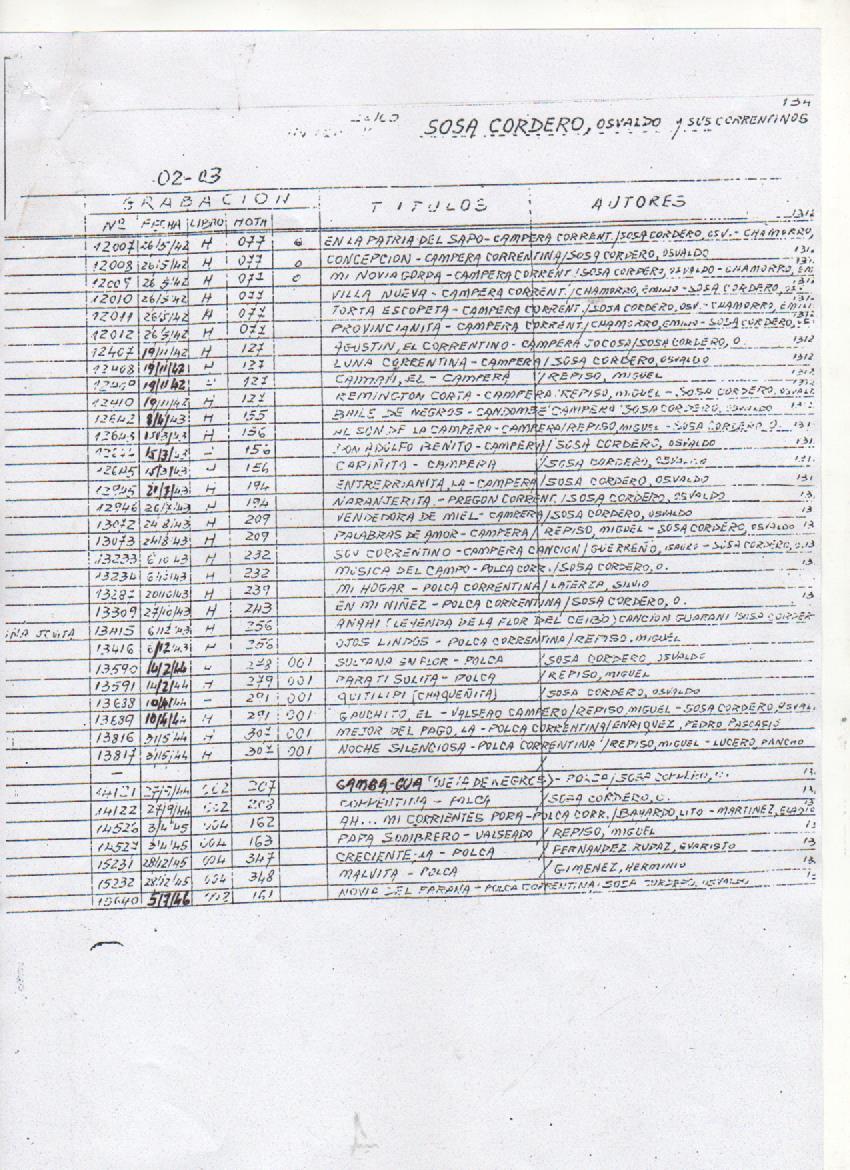 134
SOSA CORDERO, OSVALDO y SUS CORRENTINOS
02-03
GRABACION TITULOS AUTORES
Nº FECHA LIBRO HOJA
12007 26/5/42 H 077 EN LA PATRIA DEL SAPO - CAMPERA CORRENT./SOSA CORDERO, OSV. - CHAMORRO,
12008 26/5/42 H 077 CONCEPCION - CAMPERA CORRENTINA/SOSA CORDERO, OSVALDO
12009 26/5/42 H 077 MI NOVIA GORDA - CAMPERA CORRENT/SOSA CORDERO, OSVALDO - CHAMORRO, EM
12010 26/5/42 H 077 VILLA NUEVA - CAMPERA CORRENT./CHAMORRO, EMILIO - SOSA CORDERO,
12011 26/5/42 H 077 TORTA ESCOPETA - CAMPERA CORRENT./SOSA CORDERO, OSV. - CHAMORRO, EMILI
12012 26/5/42 H 077 PROVINCIANITA - CAMPERA CORRENT/CHAMORRO, EMILIO - SOSA CORDERO,
12407 19/11/42 H 127 AGUSTIN, EL CORRENTINO - CAMPERA JOCOSA/SOSA CORDERO, O.
12408 19/11/42 H 127 LUNA CORRENTINA - CAMPERA/SOSA CORDERO, OSVALDO
19/11/42 127 CAIMAN, EL - CAMPERA /REPISO, MIGUEL
12410 19/11/42 H 127 REMINGTON CORTA - CAMPERA/REPISO, MIGUEL - SOSA CORDERO,
12642 8/4/43 H 155 BAILE DE NEGROS - CANDOMBE CAMPERA/SOSA CORDERO, OSVALDO
12643 15/3/43 H 156 AL SON DE LA CAMPERA - CAMPERA/REPISO, MIGUEL - SOSA CORDERO, O.
15/3/43 156 DON ADOLFO BENITO - CAMPERA/SOSA CORDERO, OSVALDO
12645 15/3/43 H 156 CARIÑITO - CAMPERA /SOSA CORDERO, OSVALDO
12945 H 194 ENTRERRIANITA, LA - CAMPERA/SOSA CORDERO, OSVALDO
12946 26/7/43 H 194 NARANJERITA - PREGON CORRENT./SOSA CORDERO, OSVALDO
13072 24/8/43 H 209 VENDEDORA DE MIEL - CAMPERA/SOSA CORDERO, OSVALDO
13073 24/8/43 H 209 PALABRAS DE AMOR - CAMPERA/REPISO, MIGUEL - SOSA CORDERO, OSVALDO
13233 H 232 SOY CORRENTINO - CAMPERA CANCION/GUERREÑO, ISAURO - SOSA CORDERO, O.
13234 H 232 MUSICA DEL CAMPO - POLCA CORR./SOSA CORDERO, O.
13287 20/10/43 H 239 MI HOGAR - POLCA CORRENTINA/LATERZA, SILVIO
13309 27/10/43 H 243 EN MI NIÑEZ - POLCA CORRENTINA/SOSA CORDERO, O.
13415 6/12/43 H 256 ANAHI (LEYENDA DE LA FLOR DEL CEIBO) CANCION GUARANI/SOSA CORDER
13416 6/12/43 H 256 OJOS LINDOS - POLCA CORRENTINA/REPISO, MIGUEL
13590 14/2/44 278 001 SULTANA EN FLOR - POLCA /SOSA CORDERO, OSVALDO
13591 14/2/44 H 279 001 PARA TI SOLITA - POLCA /REPISO, MIGUEL
13688 10/4/44 291 001 QUITILIPI (CHAQUEÑITA) /SOSA CORDERO, OSVALDO
13689 10/4/44 H 291 001 GAUCHITO, EL - VALSEAO CAMPERO/REPISO, MIGUEL - SOSA CORDERO, OSVAL.
13816 31/5/44 H 307 001 MEJOR DEL PAGO, LA - POLCA CORRENTINA/ENRIQUEZ, PEDRO PASCASIO
13817 31/5/44 H 307 001 NOCHE SILENCIOSA - POLCA CORRENTINA/REPISO, MIGUEL - LUCERO, PANCHO
14121 27/9/44 002 207 CAMBA-GUA - POLCA/SOSA CORDERO, O.
14122 27/9/44 002 208 CORRENTINA - POLCA /SOSA CORDERO, O.
14526 3/4/45 004 162 AH... MI CORRIENTES PORA - POLCA CORR./BAYARDO, LITO - MARTINEZ, ELADIO
14527 3/4/45 004 163 PAPA SOMBRERO - VALSEADO /REPISO, MIGUEL
15231 28/12/45 004 347 CRECIENTE, LA - POLCA /FERNANDEZ RUDAZ, EVARISTO
15232 28/12/45 004 348 MALVITA - POLCA /GIMENEZ, HERMINIO
15640 5/7/46 161 NOVIA DEL PARANA - POLCA CORRENTINA/SOSA CORDERO, OSVALDO